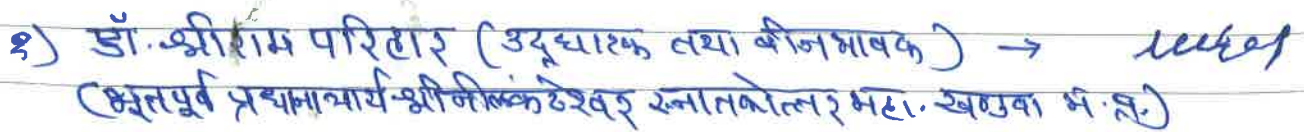 १) डॉ. श्रीराम परिहार (उद्घाटक तथा बीजभाषक) →
(भूतपूर्व प्रधानाचार्य श्रीनीलकंठेश्वर स्नातकोत्तर महा. खण्डवा म.प्र.)